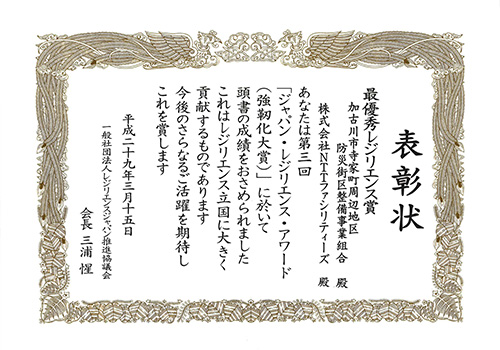 表彰状
最優秀レジリエンス賞
加古川市寺家町周辺地区
防災街区整備事業組合 殿
株式会社NTTファシリティーズ 殿
あなたは第三回
「ジャパン・レジリエンス・アワード
（強靭化大賞）」に於いて
頭書の成績をおさめられました
これはレジリエンス立国に大きく
貢献するものであります
今後のさらなるご活躍を期待し
これを賞します
平成二十九年三月十五日
一般社団法人レジリエンスジャパン推進協議会
会長 三浦 惺